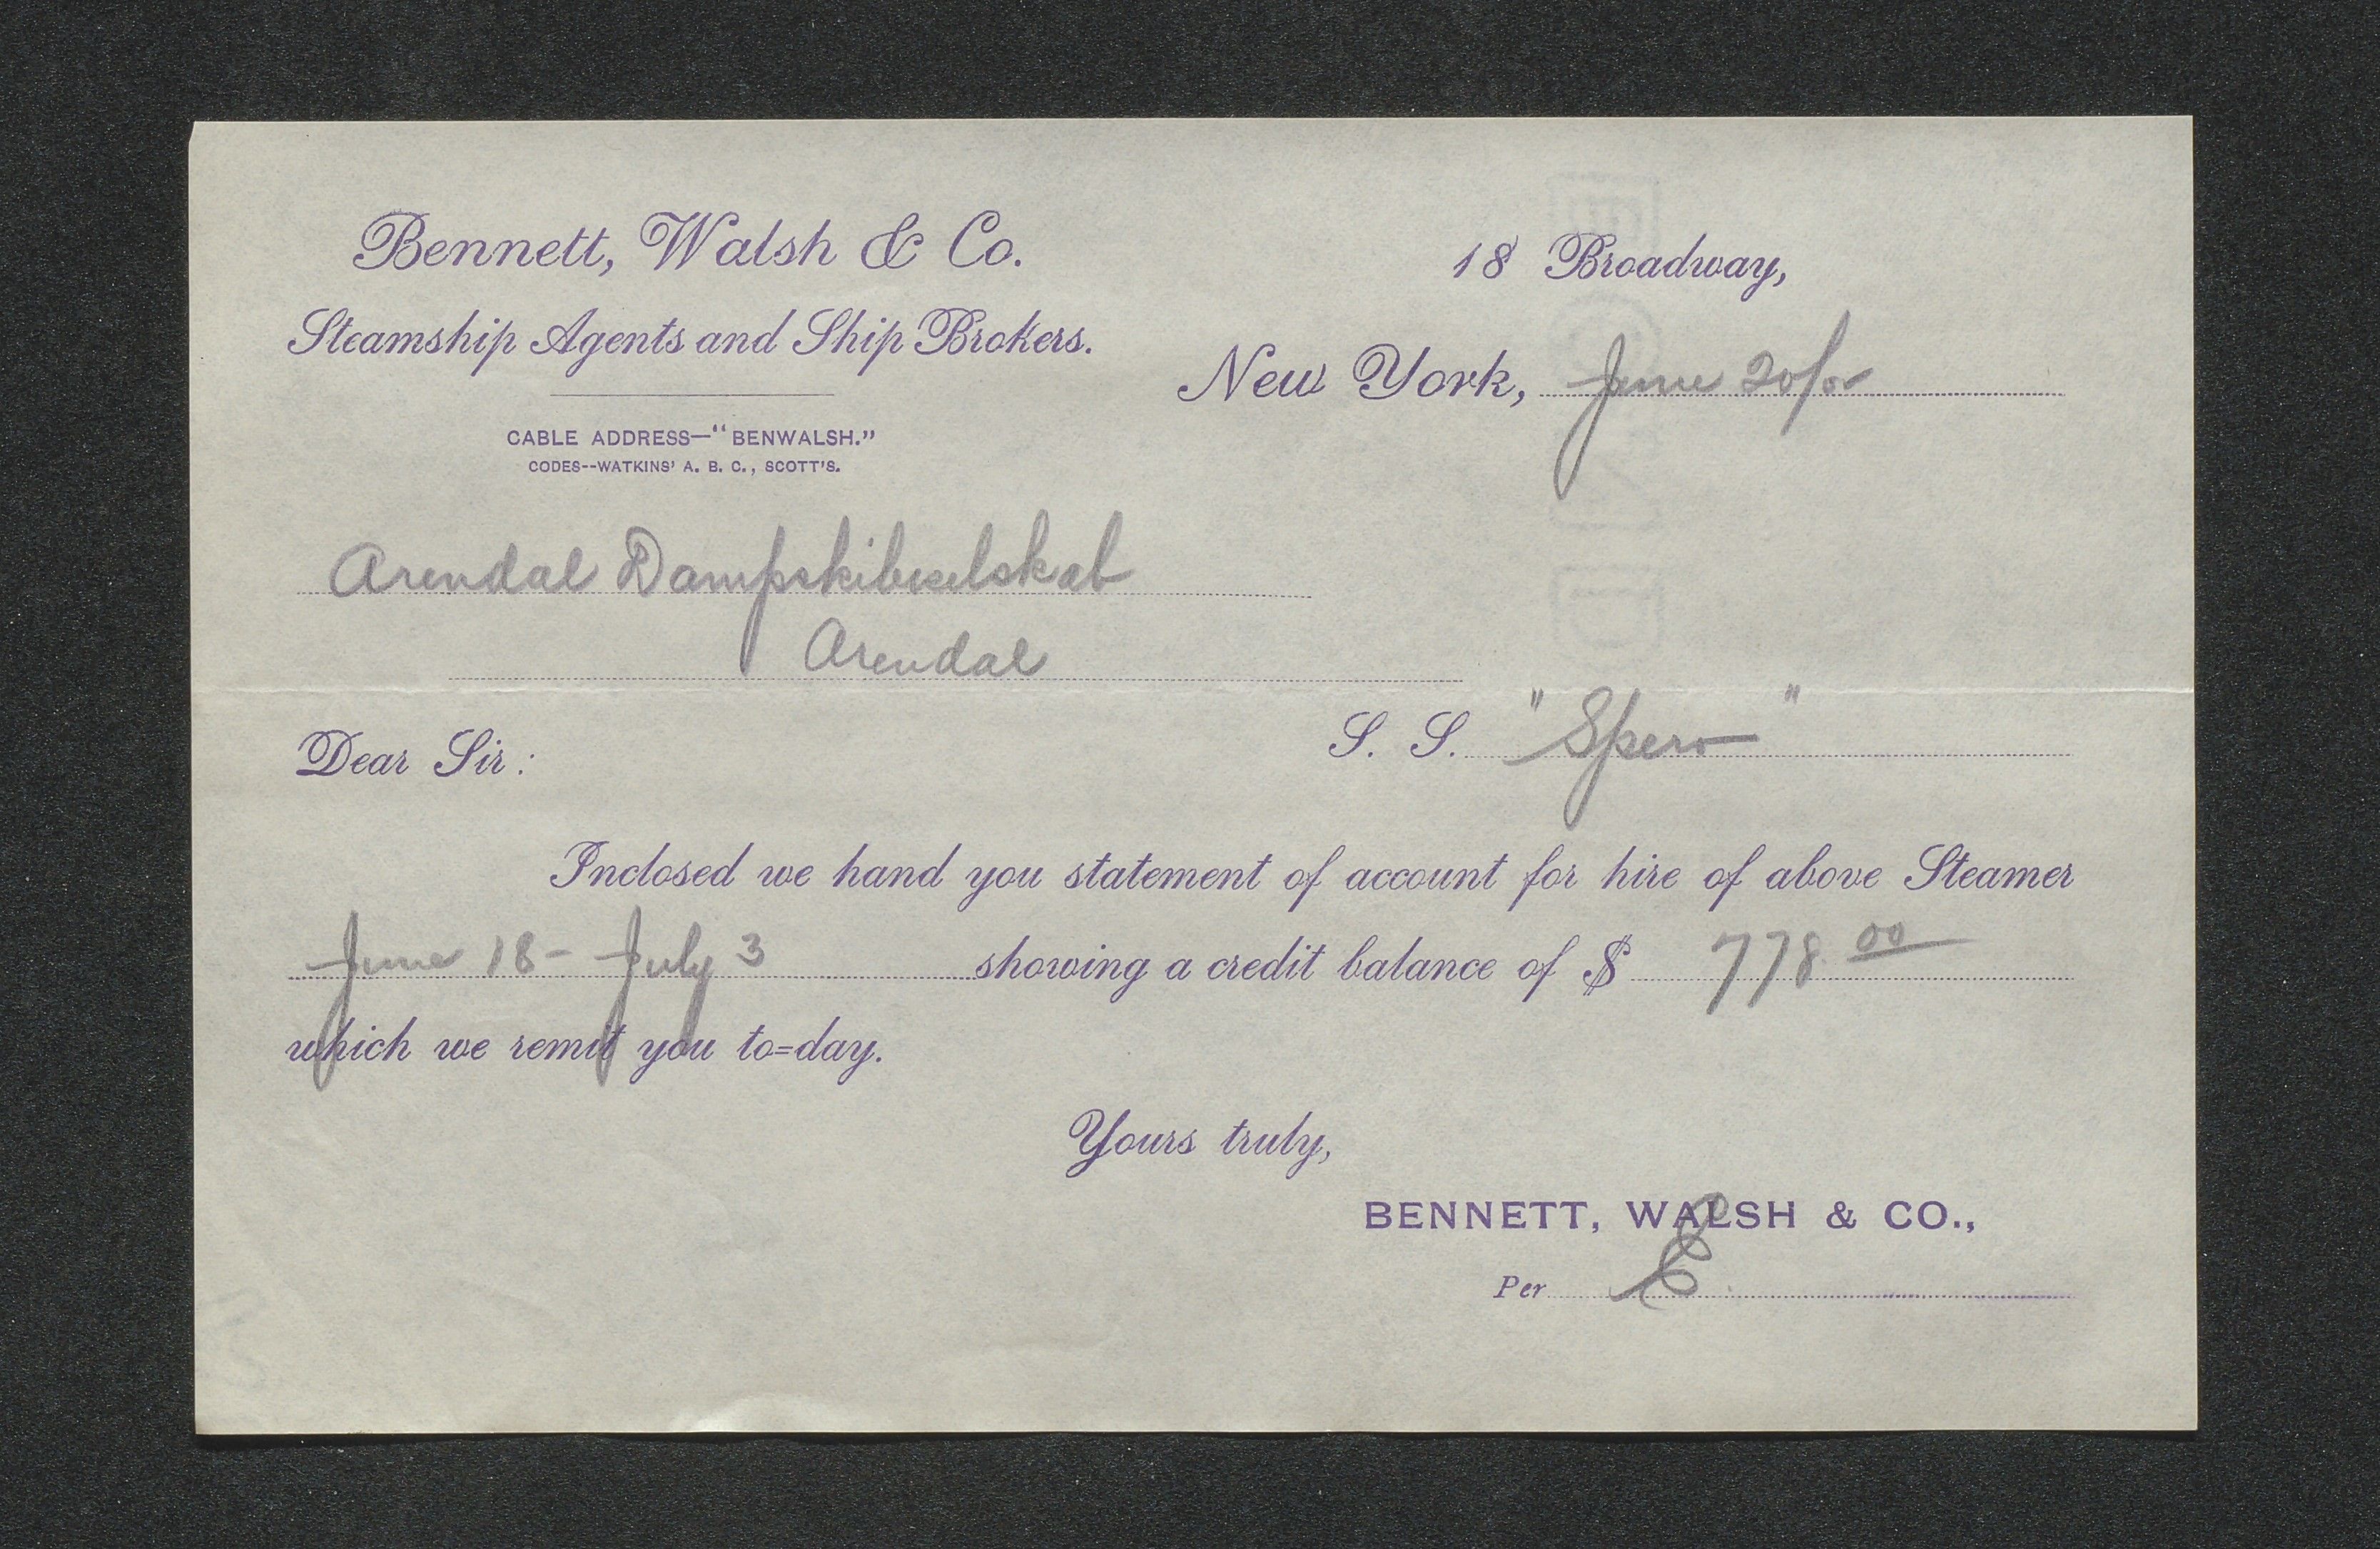 Bennett, Walsh & Co.
Steamship Agents and Ship Brokers.
CABLE ADDRESS—"BENWALSH."
CODES--WATKINS' A. B. C., SCOTT'S.
18 Broadway,
New York, June 20/
Arendal Dampskibsselskab
Arendal
Dear Sir:
S. S. "Spero"
Inclosed we hand you statement of account for hire of above Steamer
June 18 - July 3 showing a credit balance of $ 778.00
which we remit you to=day.
Yours truly,
BENNETT, WALSH & CO.,
Per